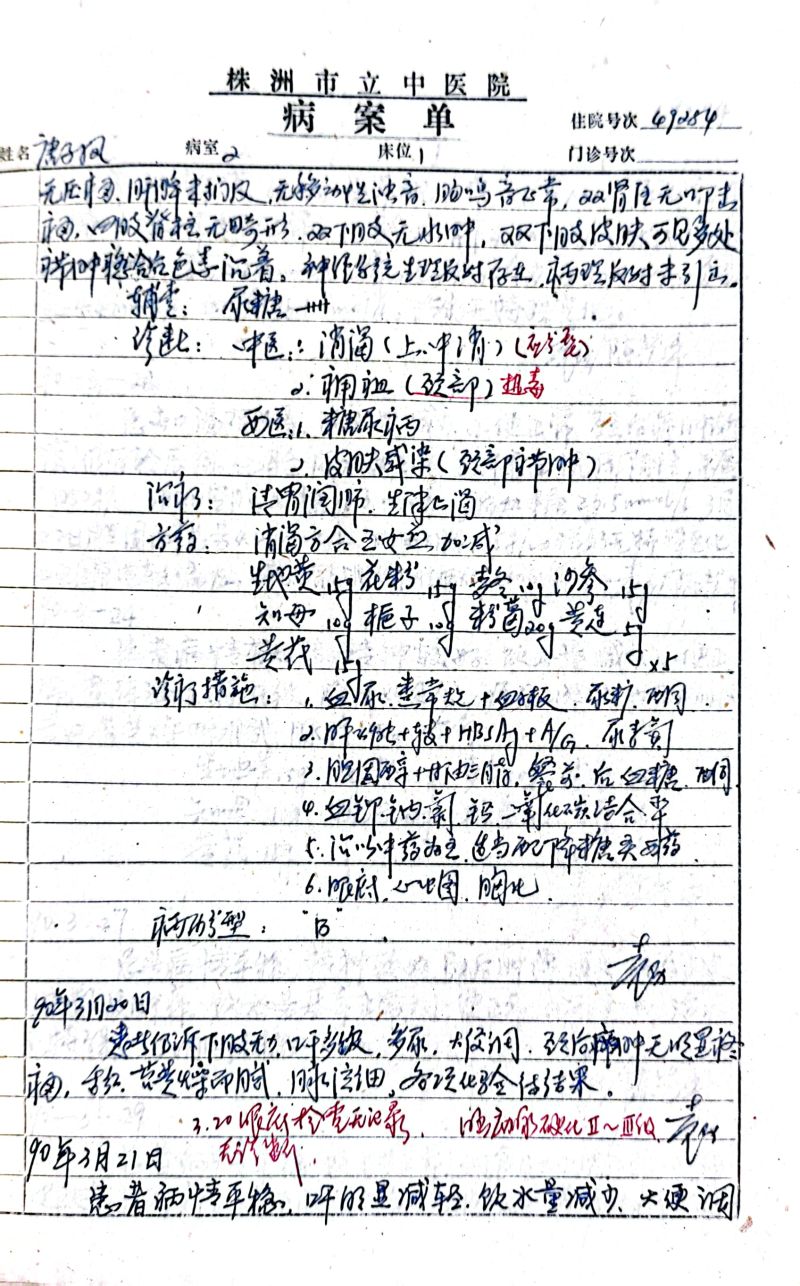 株洲市立中医院
病案单
住院号次 49284
姓名 病室 2 床位 1 门诊号次
无压痛，肝脾未扪及，无移动性浊音，肠鸣音正常，双肾区无叩击
痛，四肢脊柱无畸形，双下肢无水肿，双下肢皮肤可见多处
疖肿愈合色素沉着。神经系统生理反射存在，病理反射未引出。
辅查： 尿糖 ++++
诊断： 中医：1. 消渴（上、中消）
2. 痈疽（颈部）疽毒
西医：1. 糖尿病
2. 皮肤感染（颈部疖肿）
治疗： 清胃润肺，生津止渴
方药： 消渴方合玉女煎加减
生地黄15g 花粉15g 麦冬10g 沙参15g
知母10g 栀子10g 粉葛20g 黄连5g
黄芪15g ×5
诊疗措施： 1. 血、尿、粪常规+血板、尿糖
2. 肝功能+HBsAg+A/G、尿素氮
3. 胆固醇+甘油三脂，餐前、后血糖
4. 血钾、钠、氯、钙、二氧化碳结合率
5. 治以中药为主，适当配降糖类西药
6. 眼底、心电图、胸片
病例分型： "B"
90年3月20日
患者仍诉下肢无力，口干多饮，多尿，大便调，颈后疖肿无明显疼
痛，舌红，苔黄燥而腻，脉弦细，各项化验待结果。
3.20眼底检查无记录， 动脉硬化Ⅱ～Ⅲ级
无诊断，
90年3月21日
患者病情平稳，口干明显减轻，饮水量减少，大便调